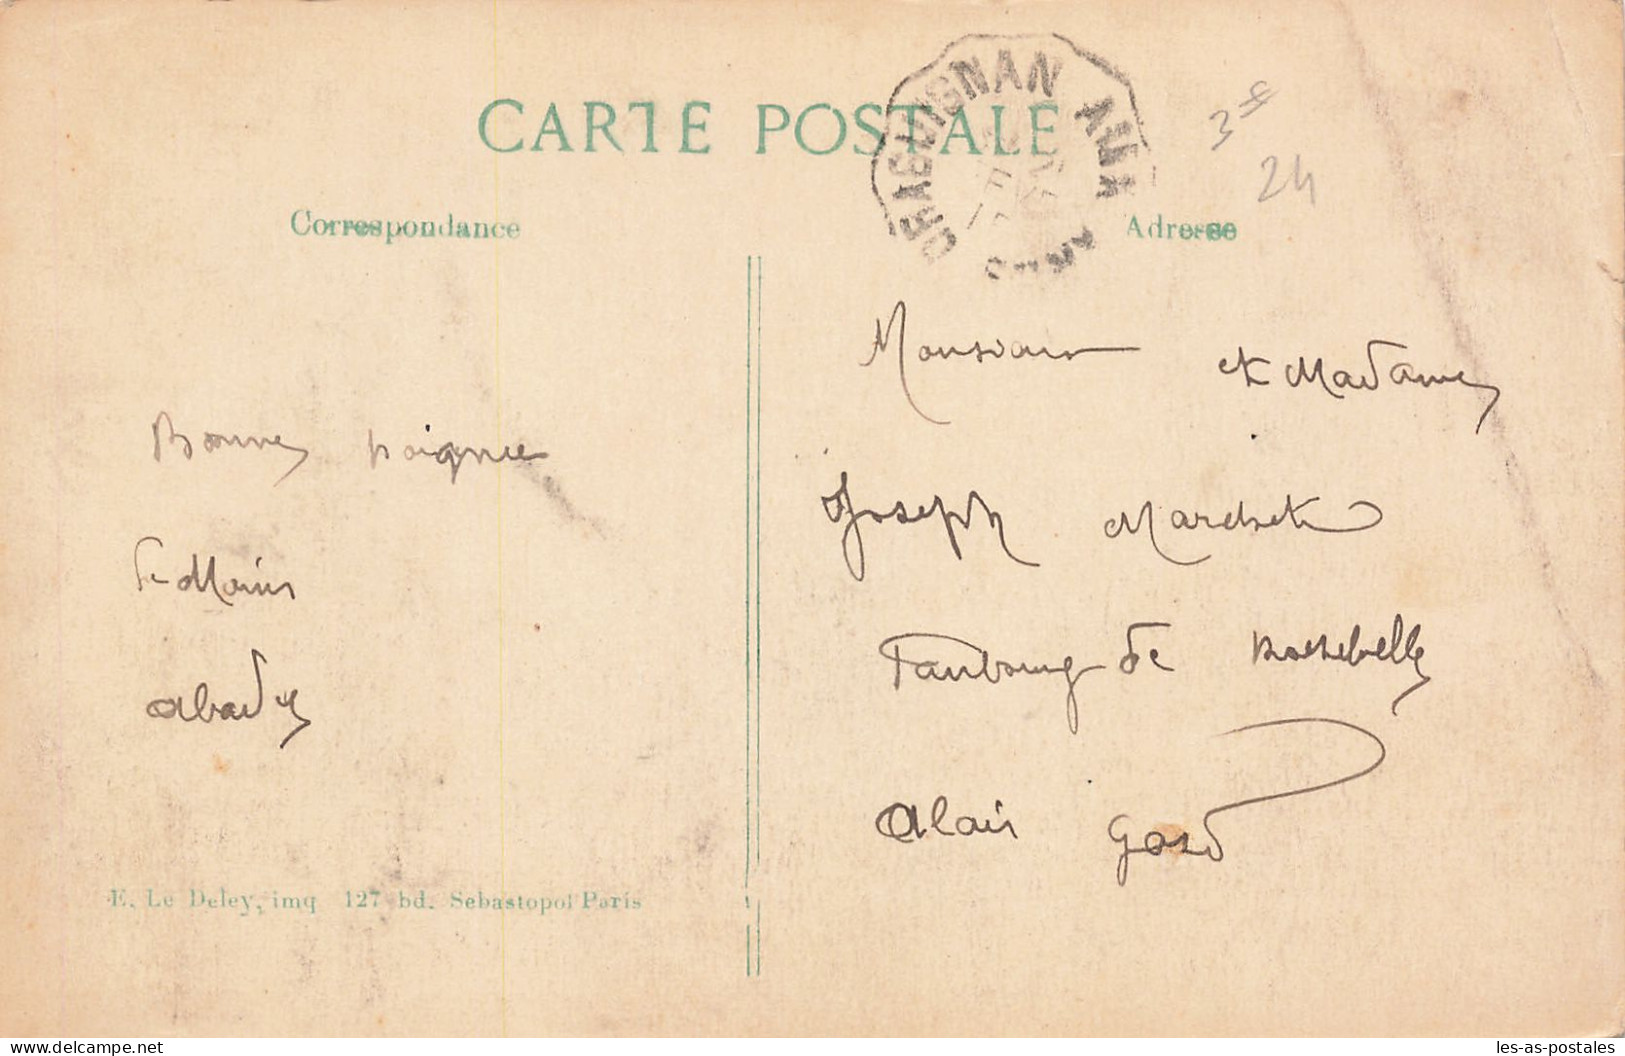 CARTE POSTALE
DRAGUIGNAN
3€
24
Correspondance
Adresse
Monsieur et Madame
Bonne poignée
Joseph
de Main
Faubourg de Rochebelle
Abadie
Alais Gard
E. Le Deley, imq 127 bd. Sebastopol Paris
delcampe.net
les-as-postales